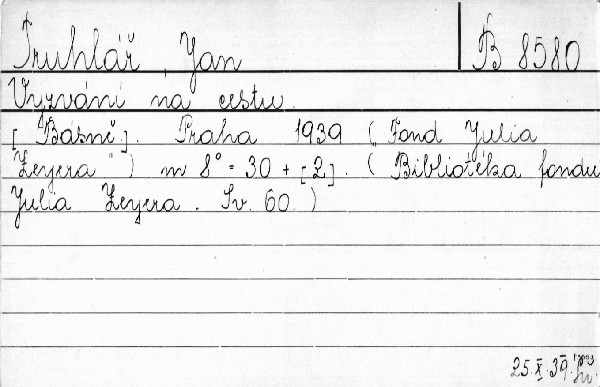 Truhlář Jan B 8580
Vyzvání na cestu.
[Básně]. Praha 1939 (Fond Julia
Zeyera) m 8° - 30 + [2]. (Bibliotéka fondu
Julia Zeyera. Sv. 60.)
25.X.39.